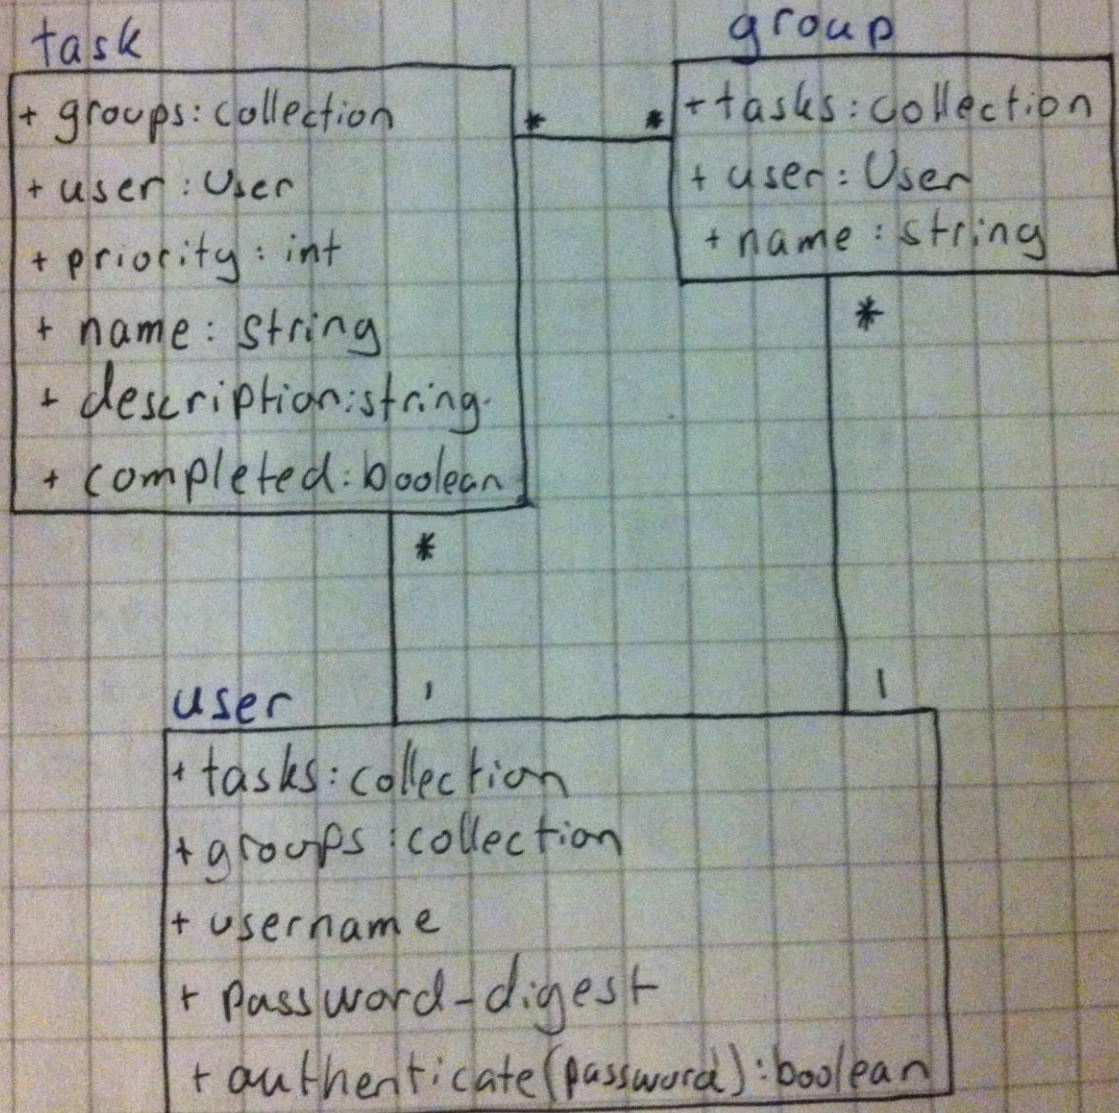 task
+ groups: collection
+ user: User
+ priority: int
+ name: string
+ description: string
+ completed: boolean
* *
group
+ tasks: collection
+ user: User
+ name: string
*
*
1
1
user
+ tasks: collection
+ groups: collection
+ username
+ password-digest
+ authenticate(password): boolean